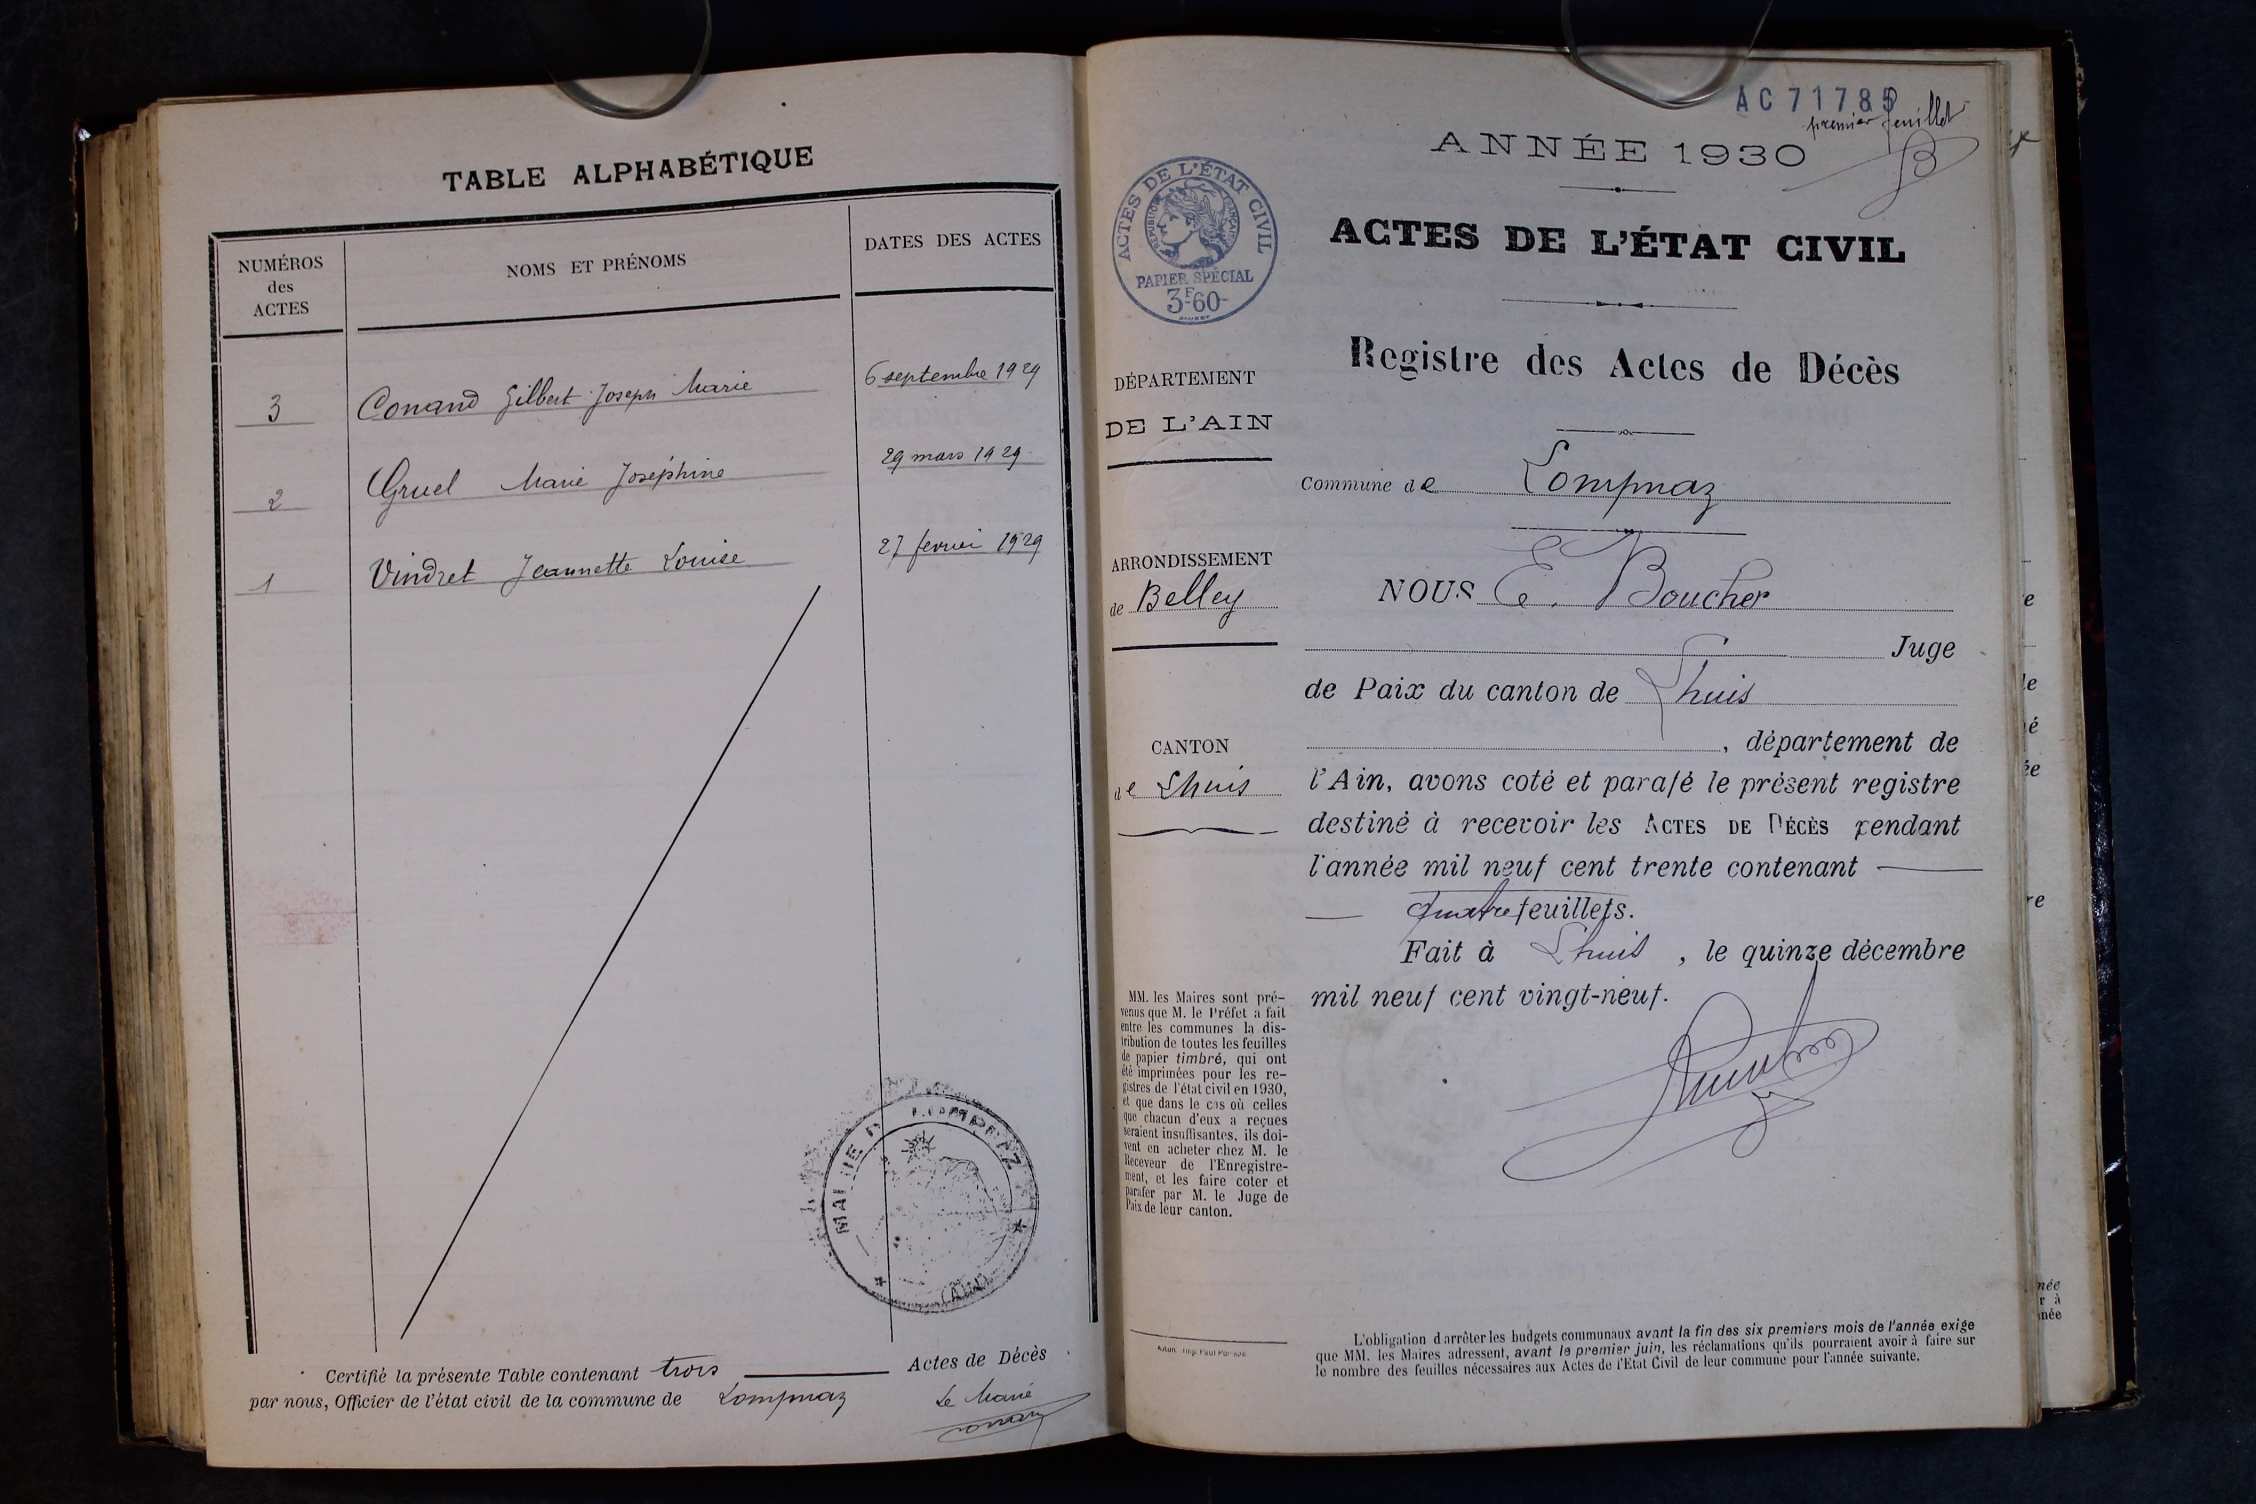 TABLE ALPHABÉTIQUE
NUMÉROS
des
ACTES
NOMS ET PRÉNOMS
DATES DES ACTES
3 Conand Gilbert Joseph Marie 6 septembre 1929
2 Gruel Marie Joséphine 29 mars 1929
1 Vindret Jeannette Louise 27 fevrier 1929
MAIRIE DE LOMPNAZ
(AIN)
Certifié la présente Table contenant trois Actes de Décès
par nous, Officier de l'état civil de la commune de Lompnaz Le Maire
AC 71785
premier feuillet
ANNÉE 1930
ACTES DE L'ÉTAT CIVIL
RÉPUBLIQUE FRANÇAISE
PAPIER SPÉCIAL
3F60
ACTES DE L'ÉTAT CIVIL
Registre des Actes de Décès
DÉPARTEMENT
DE L'AIN
ARRONDISSEMENT
de Belley
CANTON
de Lhuis
MM. les Maires sont pré-
venus que M. le Préfet a fait
entre les communes la dis-
tribution de toutes les feuilles
de papier timbré, qui ont
été imprimées pour les re-
gistres de l'état civil en 1930,
et que dans le cas où celles
que chacun d'eux a reçues
seraient insuffisantes, ils doi-
vent en acheter chez M. le
Receveur de l'Enregistre-
ment, et les faire coter et
parafer par M. le Juge de
Paix de leur canton.
Commune de Lompnaz
NOUS E. Boucher
Juge
de Paix du canton de Lhuis
, département de
l'Ain, avons coté et parafé le présent registre
destiné à recevoir les ACTES DE DÉCÈS pendant
l'année mil neuf cent trente contenant
quatre feuillets.
Fait à Lhuis, le quinze décembre
mil neuf cent vingt-neuf.
L'obligation d'arrêter les budgets communaux avant la fin des six premiers mois de l'année exige
que MM. les Maires adressent, avant le premier juin, les réclamations qu'ils pourraient avoir à faire sur
le nombre des feuilles nécessaires aux Actes de l'État Civil de leur commune pour l'année suivante.